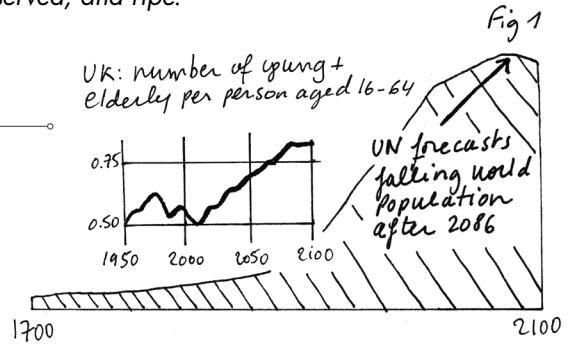 served, and ripe.
Fig 1
UK: number of young +
elderly per person aged 16-64
0.75
0.50
1950 2000 2050 2100
UN forecasts
falling world
population
after 2086
1700 2100